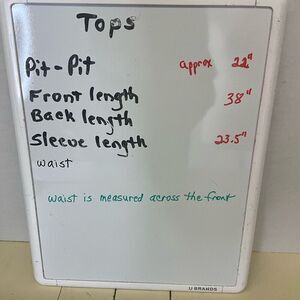 Tops
Pit-Pit approx 22"
Front length 38"
Back length
Sleeve length 23.5"
waist
waist is measured across the front
U BRANDS